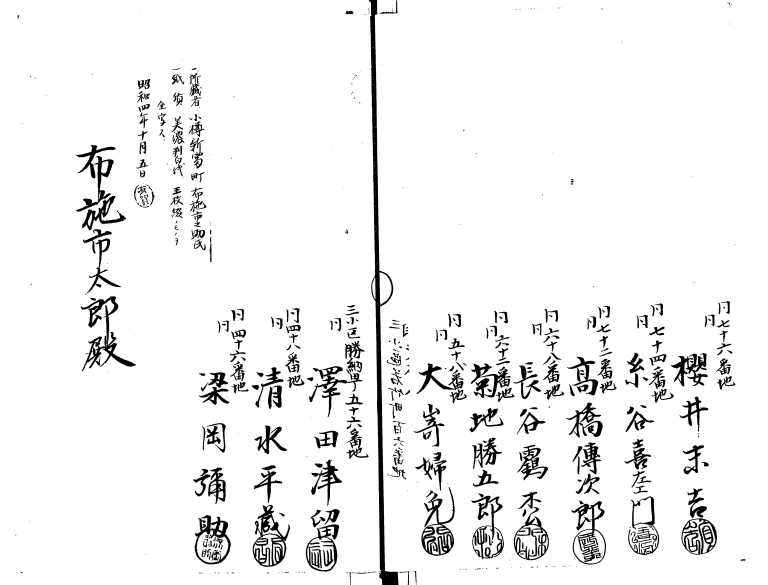 同七十六番地
同
櫻井末吉
同七十四番地
同
糸谷喜左エ門
同七十二番地
同
高橋傳次郎
同六十八番地
同
長谷
同六十二番地
同
菊地勝五郎
同五十八番地
同
大嵜婦免
三小区
町百六番地
三小区勝納町五十六番地
同
澤田津留
同四十八番地
同
清水平藏
同四十六番地
同
梁岡彌助
布施市太郎殿
一所藏者 小樽新富町 布施市之助氏
一紙 美濃判 五枚綴
昭和四年十月五日